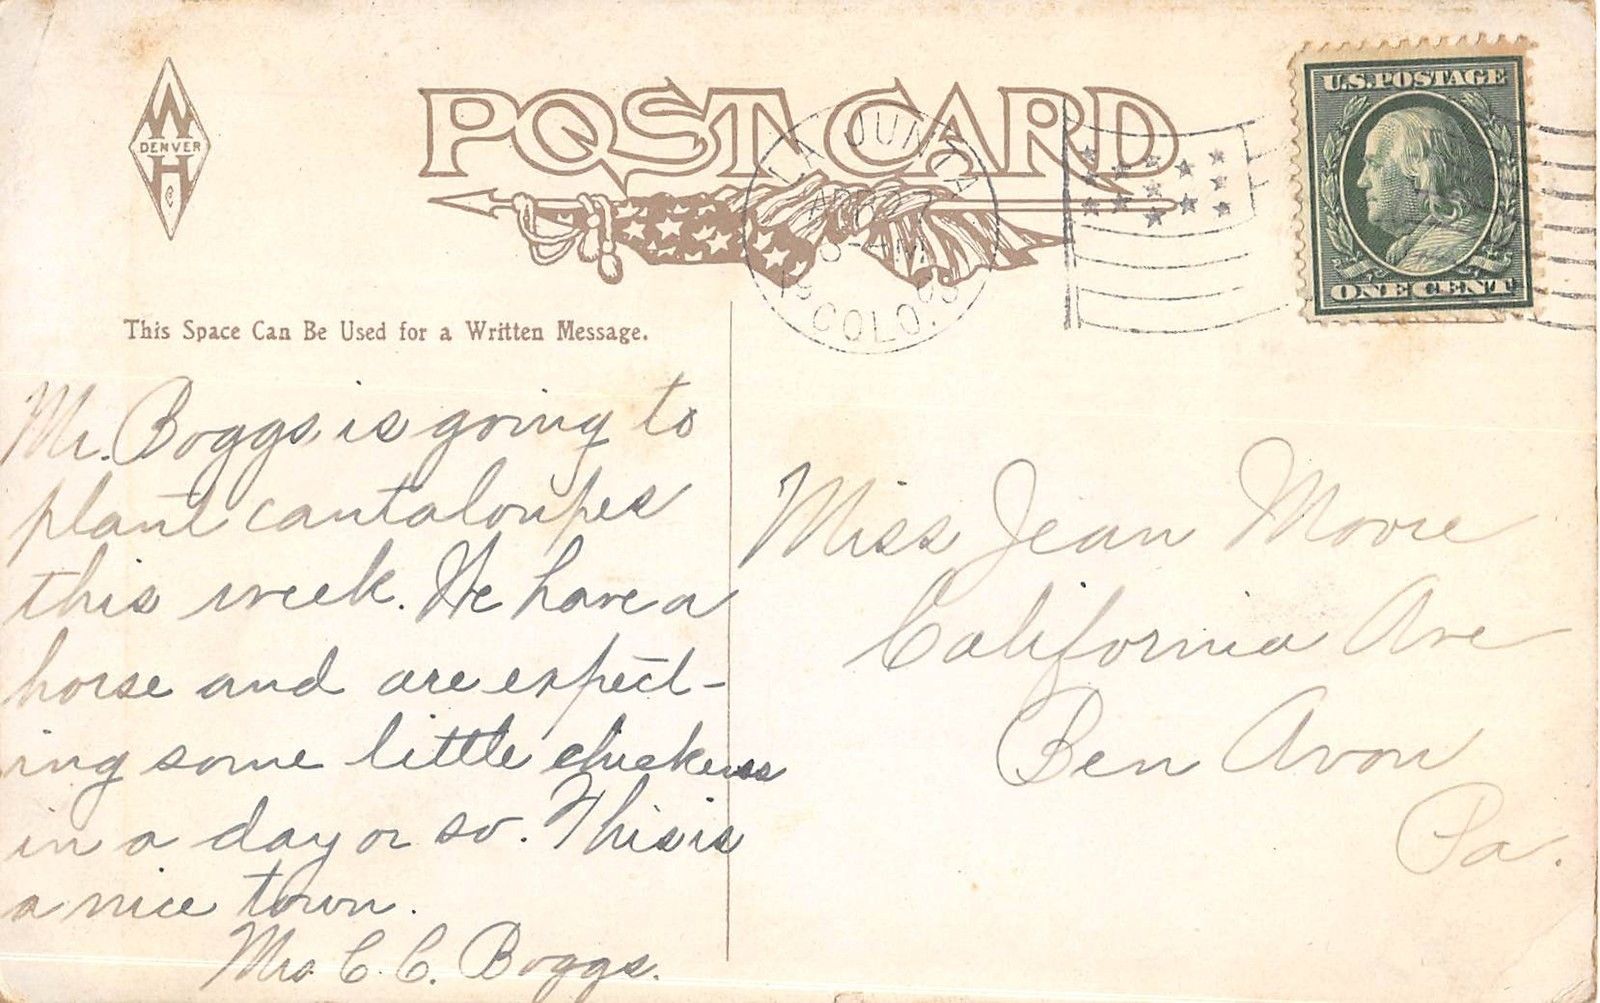 W
DENVER
H
C
POST CARD
U.S. POSTAGE
ONE CENT
LA JUNTA
APR
8-AM
1909
COLO.
This Space Can Be Used for a Written Message.
Mr. Boggs is going to
plant cantaloupes
this week. We have a
horse and are expect-
ing some little chickens
in a day or so. This is
a nice town.
Mrs C. C. Boggs.
Miss Jean Moore
California Ave
Ben Avon
Pa.